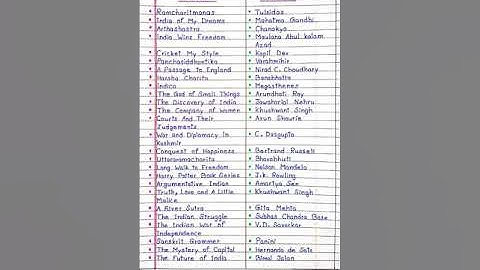 Ramcharitmanas Tulsidas
India of My Dreams Mahatma Gandhi
Arthashastra Chanakya
India Wins Freedom Maulana Abul Kalam
Azad
Cricket My Style Kapil Dev
Panchasiddhantika Varahmihir
A Passage to England Nirad C. Choudhary
Harsha Charita Banabhatta
Indica Megasthenes
The God of Small Things Arundhati Roy
The Discovery of India Jawaharlal Nehru
The Company of Women Khushwant Singh
Courts And Their Arun Shourie
Judgements
War and Diplomacy in C. Dasgupta
Kashmir
Conquest of Happiness Bertrand Russell
Uttararamacharita Bhavabhuti
Long Walk to Freedom Nelson Mandela
Harry Potter Book Series J.k. Rowling
Argumentative Indian Amartya Sen
Truth, Love and A Little Khushwant Singh
Malice
A River Sutra Gita Mehta
The Indian Struggle Subhas Chandra Bose
The Indian War of V.D. Savarkar
Independence
Sanskrit Grammer Panini
The Mystery of Capital Hernando de Soto
The Future of India Bimal Jalan